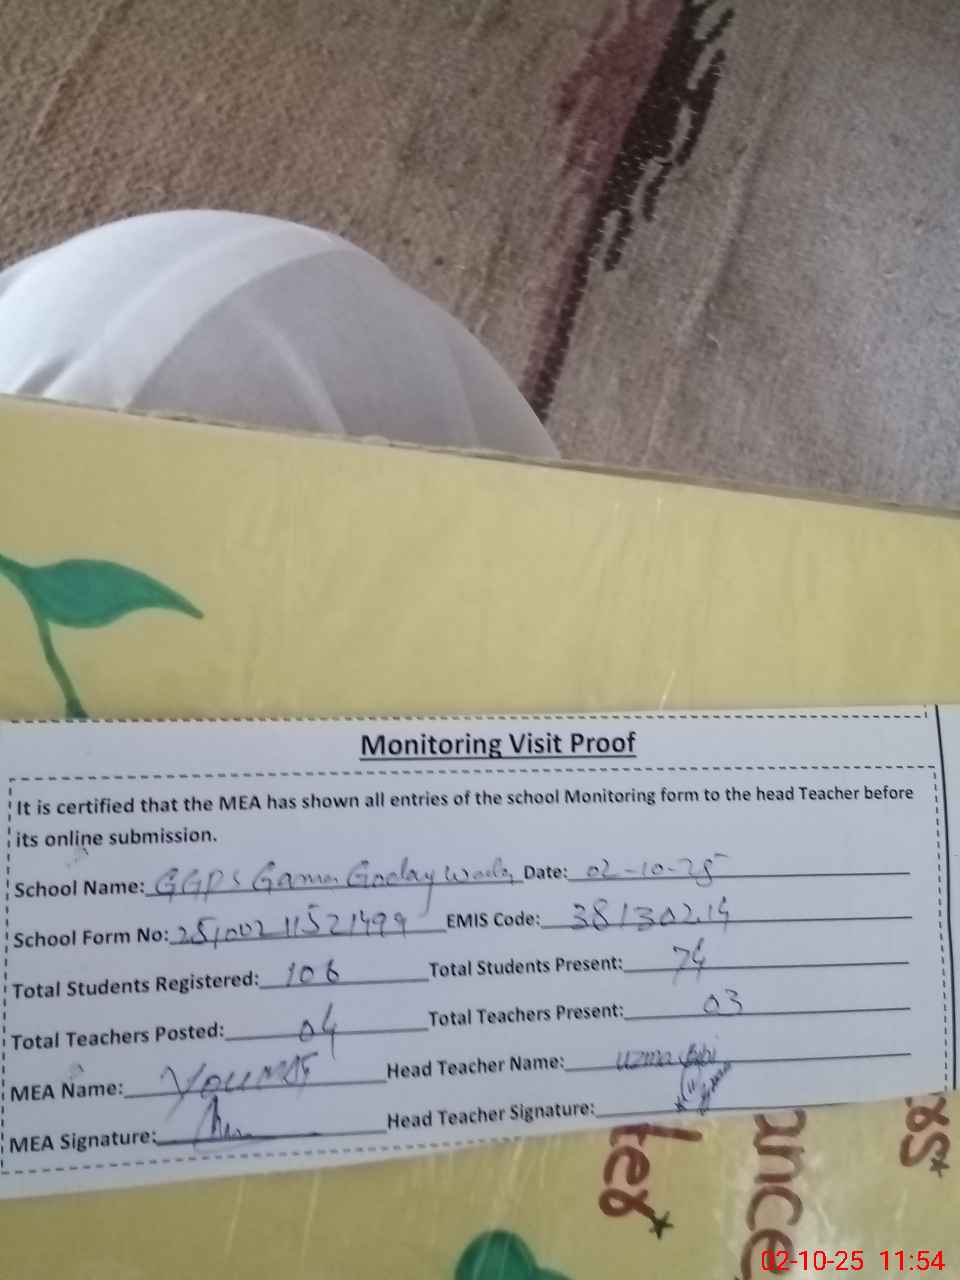 Monitoring Visit Proof
It is certified that the MEA has shown all entries of the school Monitoring form to the head Teacher before
its online submission.
School Name: GGPS Gama Date: 02-10-25
School Form No: 2510021521499 EMIS Code: 38130214
Total Students Registered: 106 Total Students Present: 74
Total Teachers Posted: 04 Total Teachers Present: 03
MEA Name: Head Teacher Name: Uzma Bibi
MEA Signature: Head Teacher Signature:
02-10-25 11:54